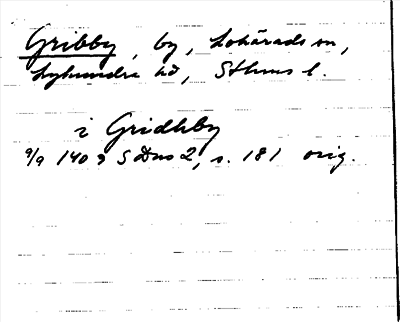 Gribby, by, Lohärads sn,
Lyhundra hd, Sthms l.
i Gridhby
9/9 1409 SDns 2, s. 181 orig.